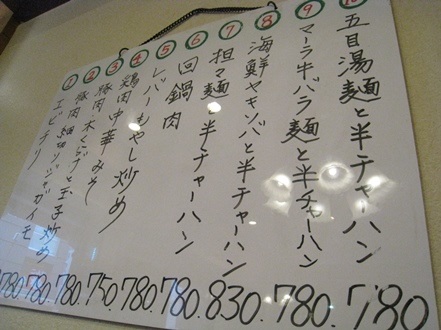 ① エビチリ
② 豚肉細切ジャガイモ 780
③ 豚肉木くらげと玉子炒め 780
④ 鶏肉中華みそ 780.
⑤ レバーもやし炒め 750
⑥ 回鍋肉 780.
⑦ 担々麺と半チャーハン 780.
⑧ 海鮮ヤキソバと半チャーハン 830.
⑨ マーラ牛バラ麺と半チャーハン 780.
⑩ 五目湯麺と半チャーハン 780